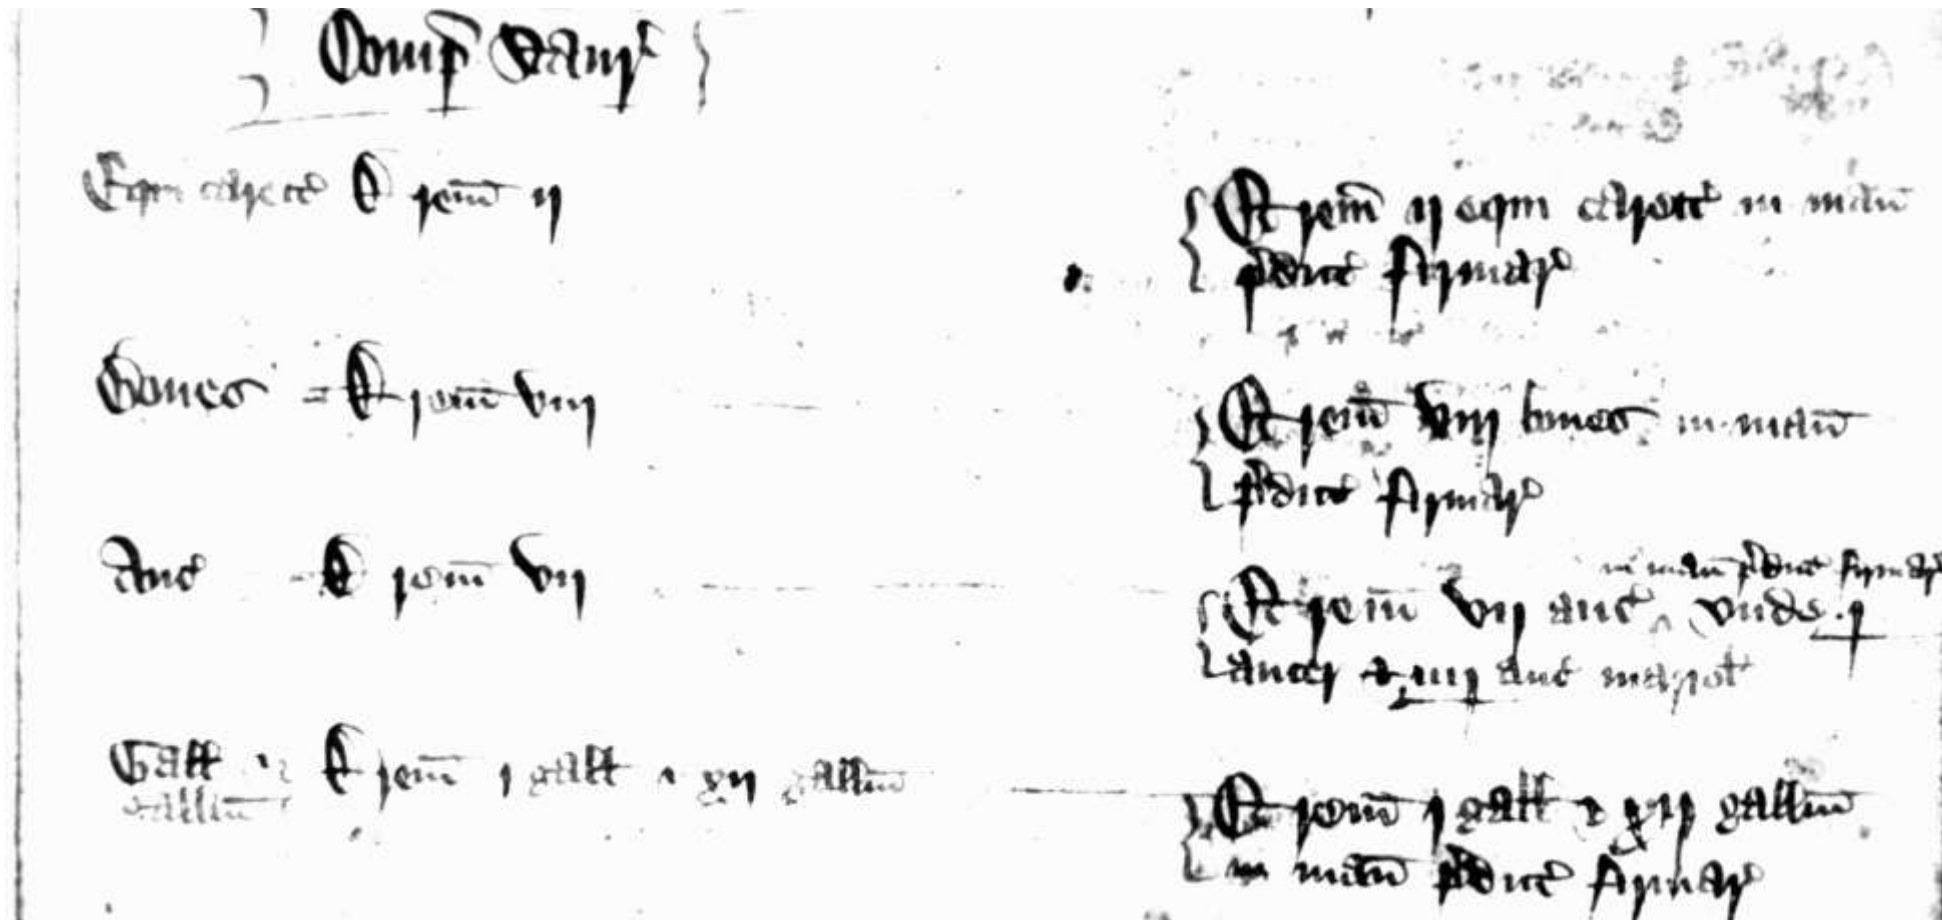 Comp Staur
Equi carect De rem ij
Et rem ij equi carect in man
pdict firmar
Boues De rem viij
Et rem viij boues in man
pdict firmar
Auc De rem vij
in man pdict firmar
Et rem vij auc unde j
aucer & iiij auc mariol
Gall & De rem j gall & xij gallin
gallin
Et rem j gall & xij gallin
in man pdict firmar